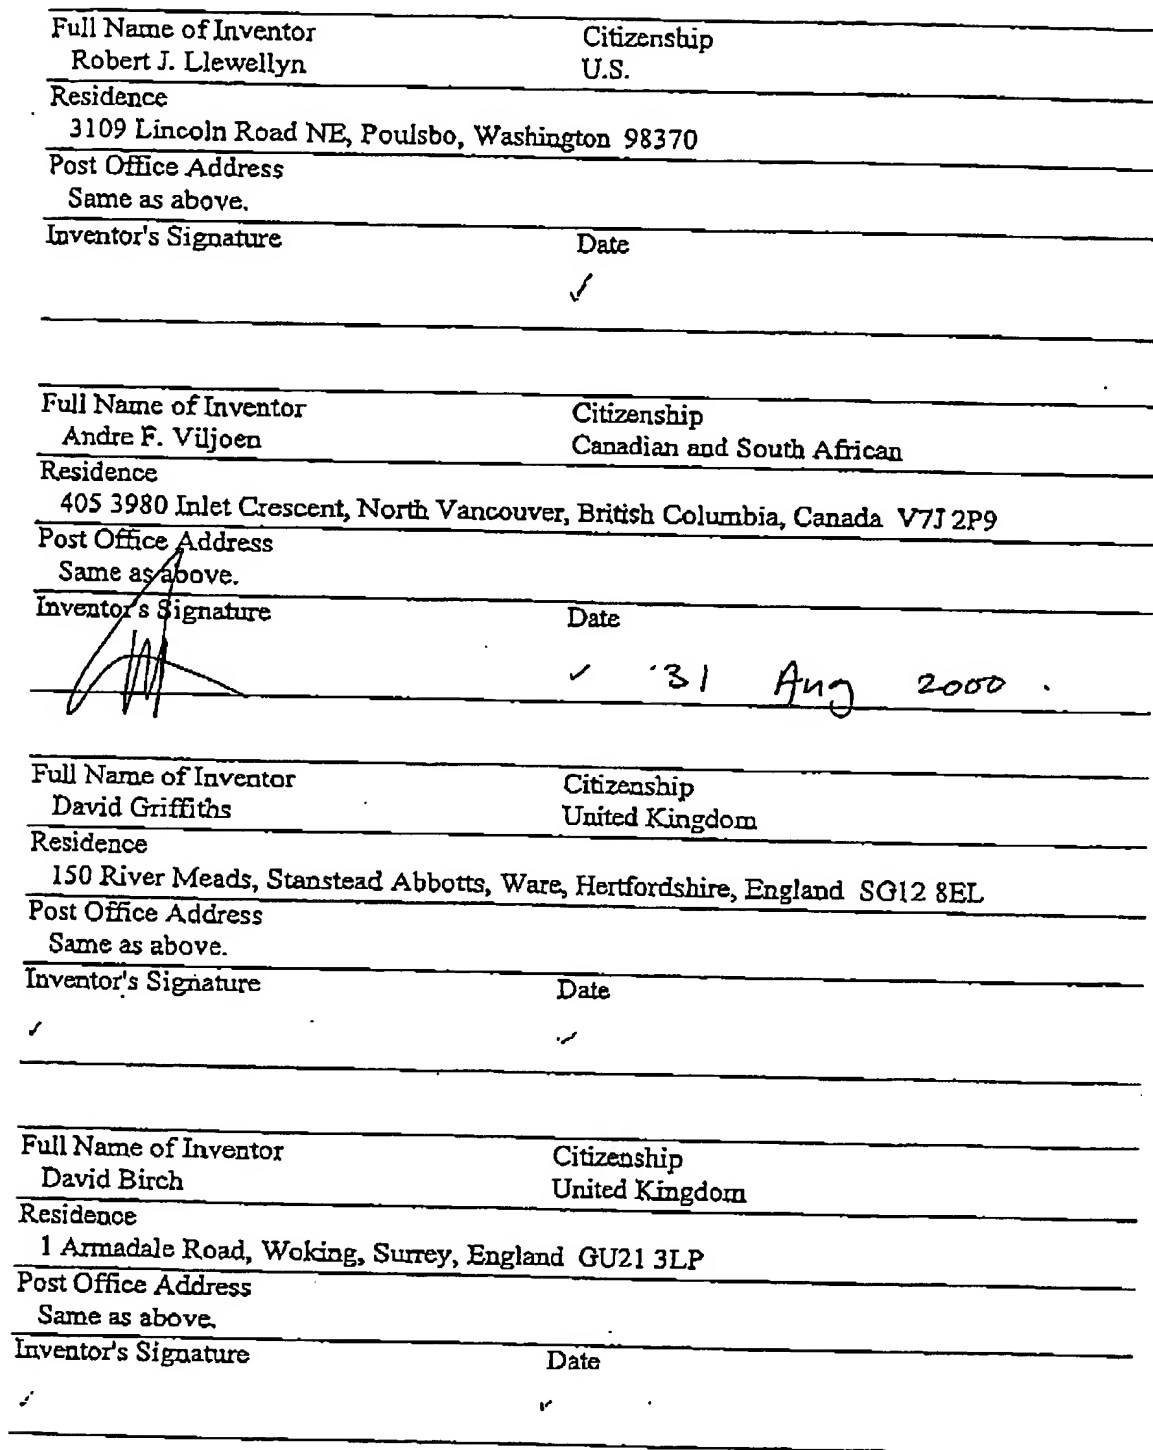 Full Name of Inventor Citizenship
Robert J. Llewellyn U.S.
Residence
3109 Lincoln Road NE, Poulsbo, Washington 98370
Post Office Address
Same as above.
Inventor's Signature Date
✓
Full Name of Inventor Citizenship
Andre F. Viljoen Canadian and South African
Residence
405 3980 Inlet Crescent, North Vancouver, British Columbia, Canada V7J 2P9
Post Office Address
Same as above.
Inventor's Signature Date
✓ 31 Aug 2000.
Full Name of Inventor Citizenship
David Griffiths United Kingdom
Residence
150 River Meads, Stanstead Abbotts, Ware, Hertfordshire, England SG12 8EL
Post Office Address
Same as above.
Inventor's Signature Date
✓ ✓
Full Name of Inventor Citizenship
David Birch United Kingdom
Residence
1 Armadale Road, Woking, Surrey, England GU21 3LP
Post Office Address
Same as above.
Inventor's Signature Date
✓ ✓